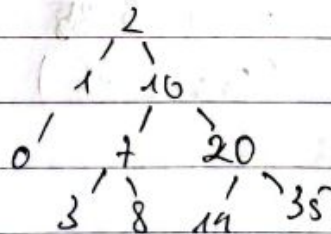 2
1 10
0 7 20
3 8 14 35